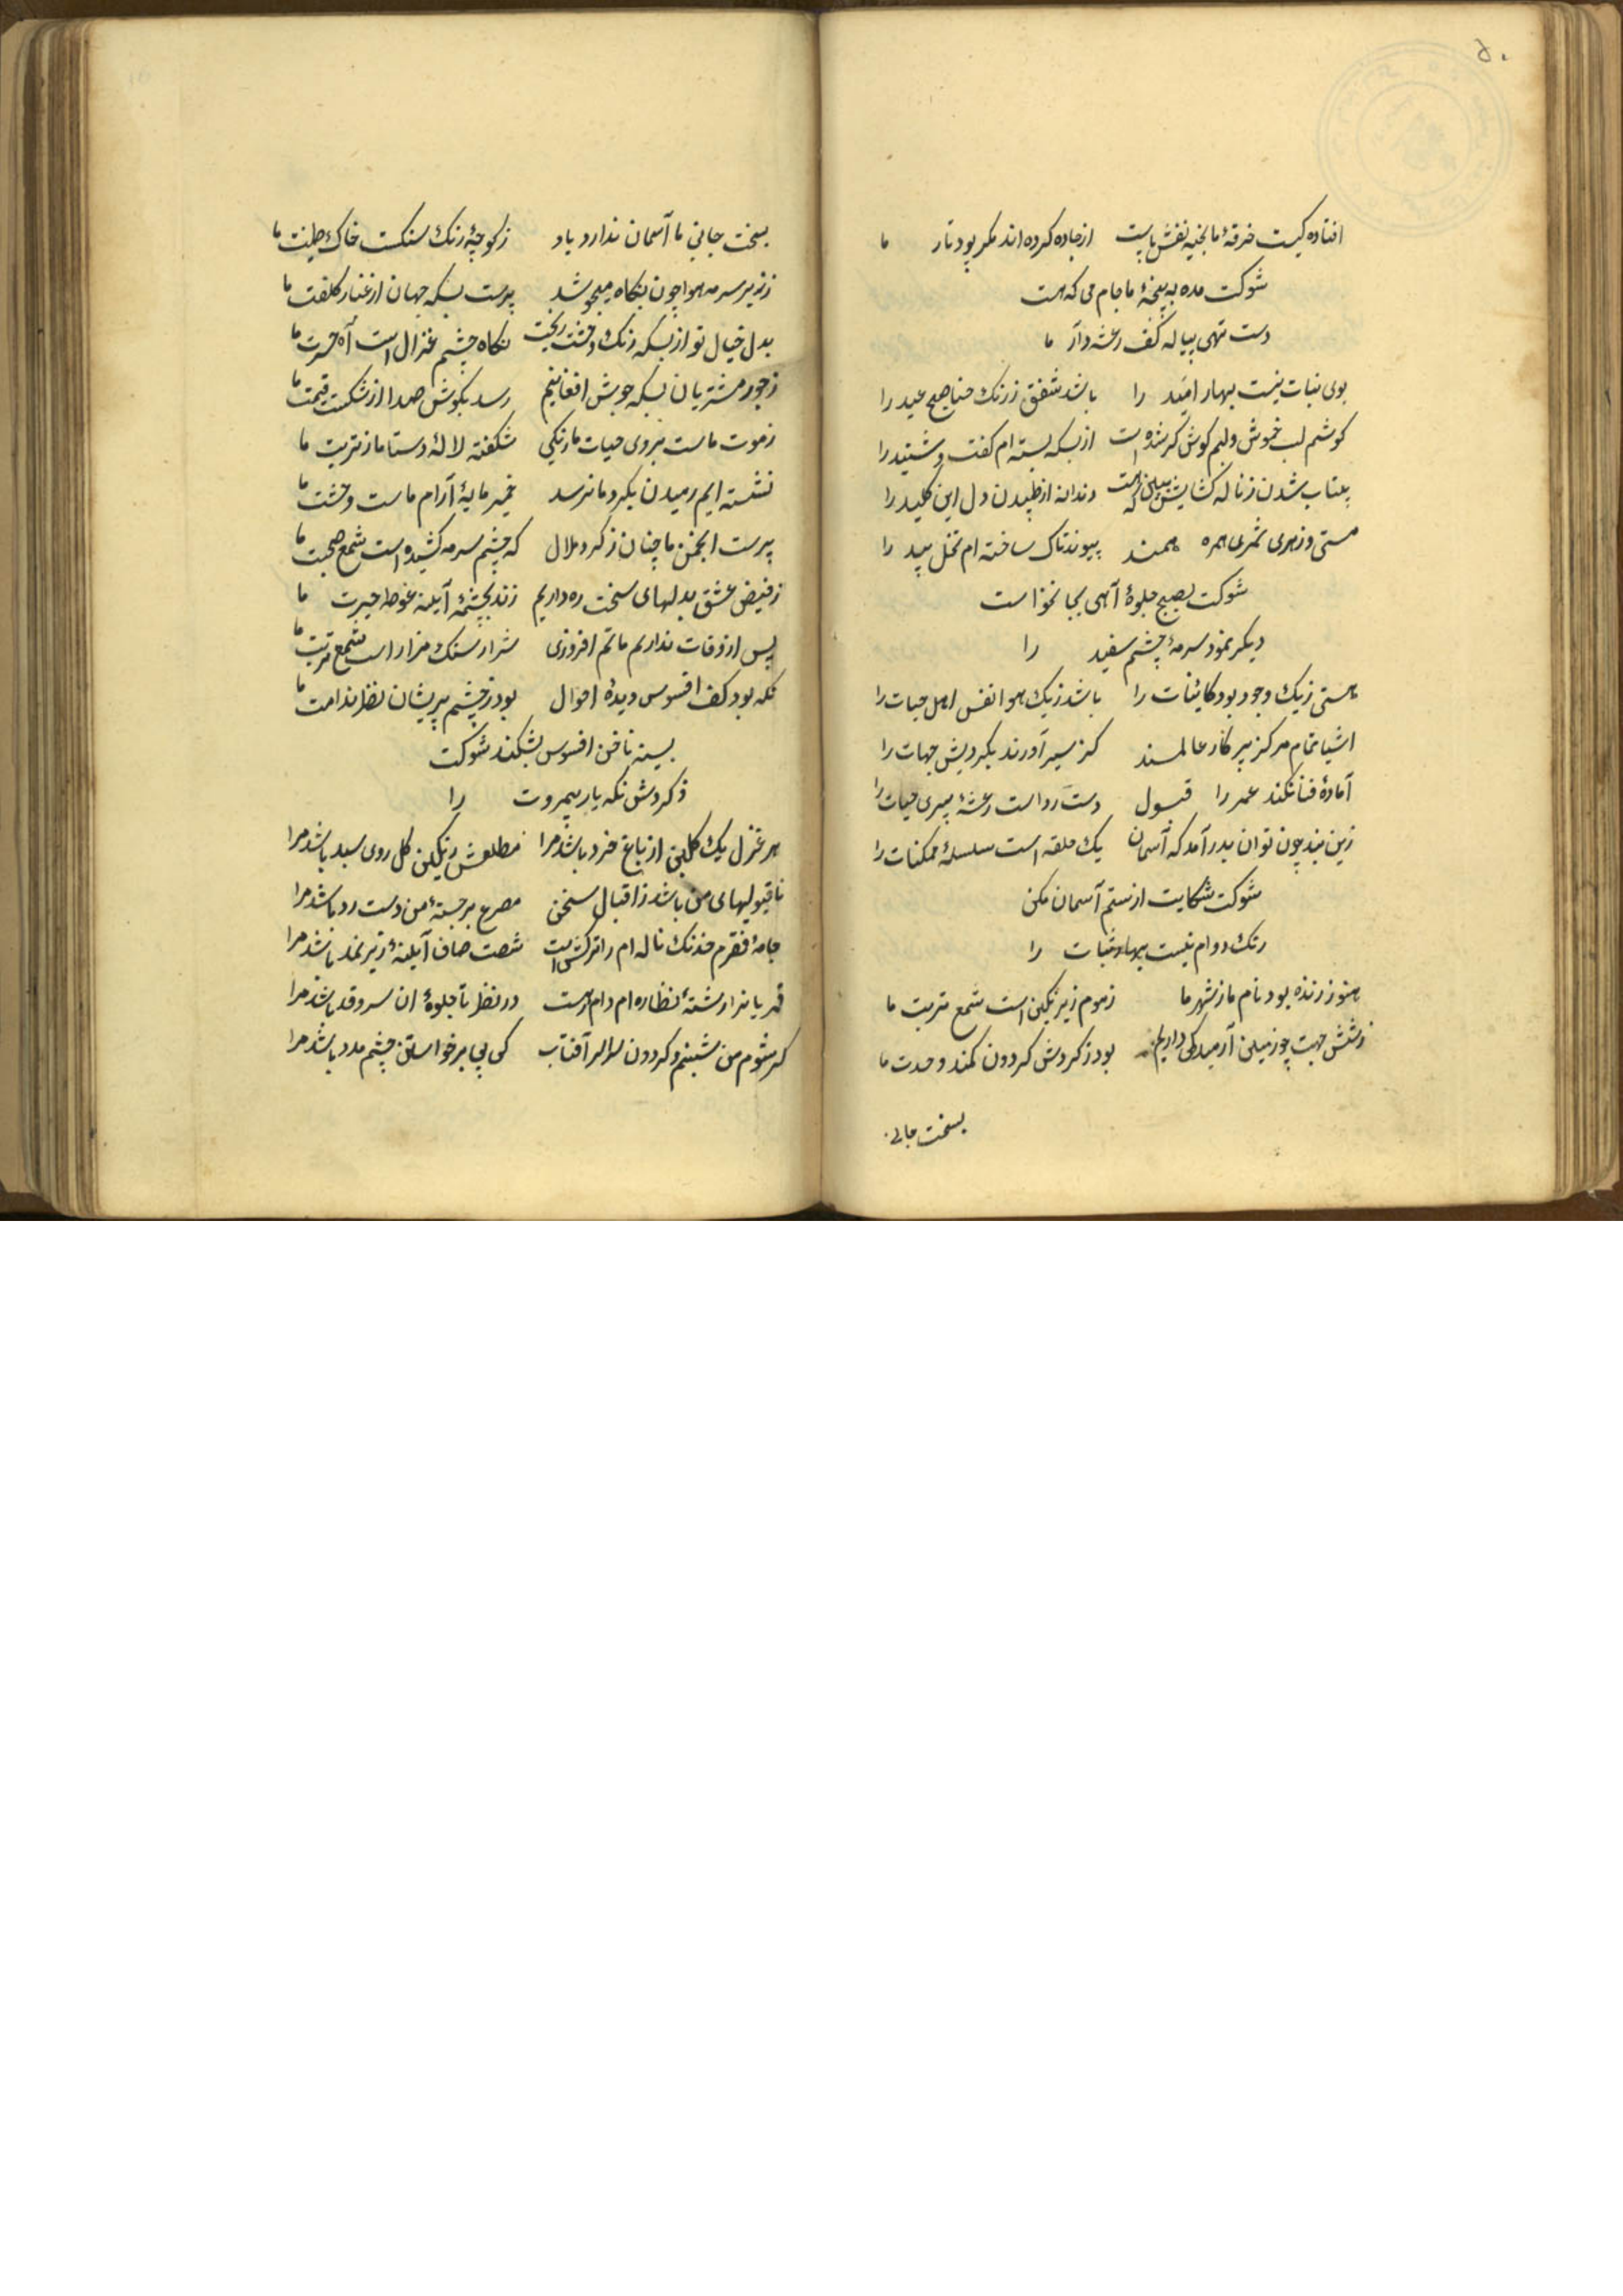 ۵۰
افتاده کیست خرقهٔ ما بخیه نقش پاست از جاده کرده اند مکر پود تار ما
شوکت مده به پنجهٔ ما جام می که هست
دست تهی پیاله کف رعشه دار ما
بوی نبات نیست بهار امید را باشد شفق ز رنک حنا صبح عید را
کوشم لب خموش و لبم کوش کر شده است از بسکه بسته ام کفت و شنید را
بیتاب شدن ز ناله کشایش دندانه از طپیدن دل این کلید را
مستی و زهری ثمری همره همند پیوند تاک ساخته ام نخل بید را
شوکت بصبح جلوهٔ آهی بجا نخواست
دیکر نمود سرمهٔ چشم سفید را
هستی ز یک وجود بود کائنات را باشد ز یک هوا نفس اهل حیات را
اشیا تمام مرکز پرکار عالمند کز سیر آورند بکردیش جهات را
آمادهٔ فنا نکند عمر را قبول دست رد است رعشهٔ پیری حیات را
زین بند چون توان بدر آمد که آسمان یک حلقه است سلسلهٔ ممکنات را
شوکت شکایت از ستم آسمان مکن
رنک دوام نیست بهار ثبات را
هنوز زنده بود نام ما ز شهر ما ز موم زیر نکین است شمع تربت ما
ز شش جهت چو زمین آرمیدکی داریم بود ز کردش کردون کمند وحدت ما
بسخت جانی
بسخت جانی ما آسمان ندارد یاد ز کوچهٔ رنک سنکست خاک طینت ما
ز زیر سرمه هوا چون نکاه میجوشد پرست بسکه جهان از غبار کلفت ما
بدل خیال تو از بسکه رنک وحشت ریخت نکاه چشم غزال است آه حسرت ما
ز جور مشتریان بسکه جوش افغانیم رسد بکوش صدا از شکست قیمت ما
ز موت ماست بروی حیات ما رنکی شکفته لالهٔ دستا ما ز تربت ما
نشسته ایم رمیدن بکرد ما نرسد خمیر مایهٔ آرام ماست وحشت ما
پرست انجمن ما چنان ز کرد ملال که چشم سرمه کشیده است شمع صحبت ما
ز فیض عشق بدلهای سخت ره داریم زند بچشمهٔ آیینه غوطه حیرت ما
پس از وفات نداریم ماتم افروزی شرار سنک مزار است شمع تربت ما
نکه بود کف افسوس دیدهٔ احوال بود ز چشم پریشان نظر ندامت ما
بسینه ناخن افسوس بشکند شوکت
ز کردش نکه یار بیمروت را
هر غزل یک کلبن از باغ خرد باشد مرا مطلعش رنکین کل روی سبد باشد مرا
ناقبولیهای من باشد ز اقبال سخن مصرع برجستهٔ من دست رد باشد مرا
جامهٔ فقرم خدنک ناله ام را ترکش است شصت صاف آیینهٔ زیر نمد باشد مرا
قمریانرا رشتهٔ نظاره ام دام است در نظر تا جلوهٔ ان سرو قد باشد مرا
کر شوم من شبنم و کردون سراسر آفتاب کی پی برخواستن چشم مدد باشد مرا